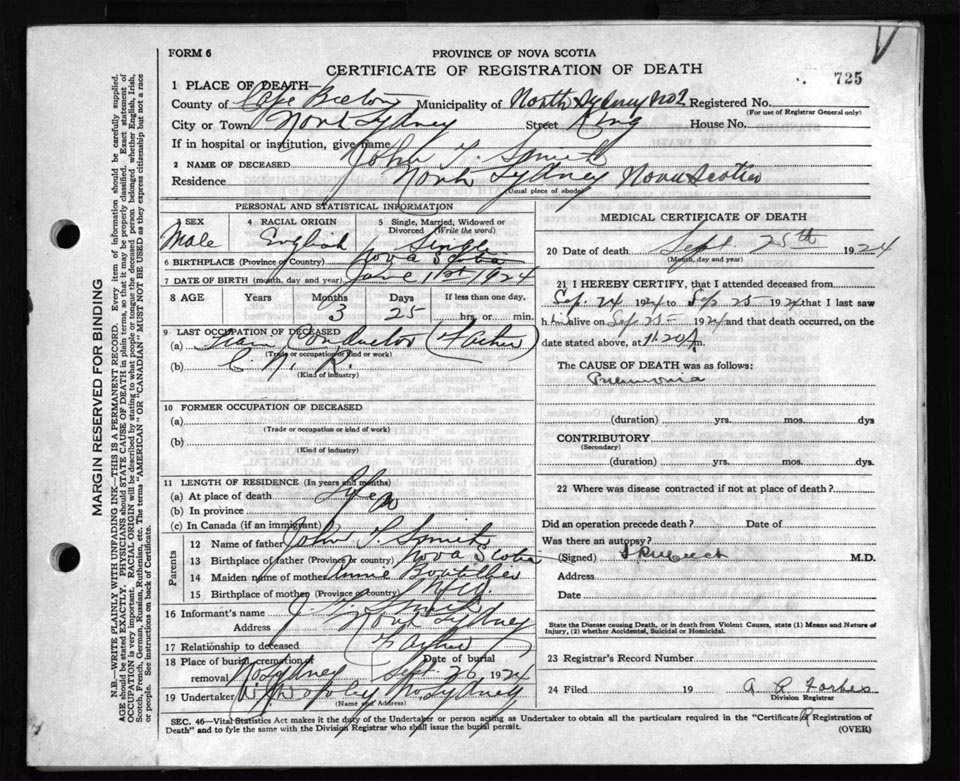 FORM 6
PROVINCE OF NOVA SCOTIA
CERTIFICATE OF REGISTRATION OF DEATH
725
1 PLACE OF DEATH—
County of Cape Breton Municipality of North Sydney No 2 Registered No.
(For use of Registrar General only)
City or Town North Sydney Street King House No.
If in hospital or institution, give name
2 NAME OF DECEASED John T. Smith
Residence North Sydney Nova Scotia
(Usual place of abode)
PERSONAL AND STATISTICAL INFORMATION
3 SEX Male
4 RACIAL ORIGIN English
5 Single, Married, Widowed or Divorced (Write the word) Single
6 BIRTHPLACE (Province or Country) Nova Scotia
7 DATE OF BIRTH (month, day, year) June 1st 1924
8 AGE Years Months Days If less than one day,
3 25 hrs. or min.
9 LAST OCCUPATION OF DECEASED
(a) Train Conductor (Father)
(Trade or occupation or kind or work)
(b) C. N. R.
(Kind of industry)
10 FORMER OCCUPATION OF DECEASED
(a)
(Trade or occupation or kind of work)
(b)
(Kind of industry)
11 LENGTH OF RESIDENCE (In years and months)
(a) At place of death Life
(b) In province
(c) In Canada (if an immigrant)
Parents
12 Name of father John T. Smith
13 Birthplace of father (Province or country) Nova Scotia
14 Maiden name of mother Annie Boutilier
15 Birthplace of mother (Province or country) N.S.
16 Informant's name J. T. Smith
Address North Sydney
17 Relationship to deceased Father
18 Place of burial, cremation or removal No Sydney Date of burial Sept 26 1924
19 Undertaker No Sydney
(Name and Address)
MEDICAL CERTIFICATE OF DEATH
20 Date of death Sept. 25th 1924
(Month, day and year)
21 I HEREBY CERTIFY, that I attended deceased from
Sep 24 1924 to Sep 25 1924 that I last saw
h im alive on Sep 25 1924 and that death occurred, on
date stated above, at 11.20 A m.
The CAUSE OF DEATH was as follows:
Pneumonia
(duration) yrs. mos. dys
CONTRIBUTORY
(Secondary)
(duration) yrs. mos. dys.
22 Where was disease contracted if not at place of death?
Did an operation precede death? Date of
Was there an autopsy?
(Signed) M.D.
Address
Date
State the Disease causing Death, or in death from Violent Causes, state (1) Means and Nature of Injury, (2) whether Accidental, Suicidal or Homicidal.
23 Registrar's Record Number
24 Filed 19 A R Forbes
Division Registrar
SEC. 46—Vital Statistics Act makes it the duty of the Undertaker or person acting as Undertaker to obtain all the particulars required in the "Certificate of Registration of
Death" and to fyle the same with the Division Registrar who shall issue the burial permit.
(OVER)
MARGIN RESERVED FOR BINDING
N.B.—WRITE PLAINLY WITH UNFADING INK—THIS IS A PERMANENT RECORD. Every item of information should be carefully supplied.
AGE should be stated EXACTLY. PHYSICIANS should STATE CAUSE OF DEATH in plain terms, so that it may be properly classified. Exact statement of
OCCUPATION is very important. RACIAL ORIGIN will be described by stating to what people or tongue the deceased person belonged whether English, Irish,
Scotch, French, German, Russian, Ruthenian, etc. The terms "AMERICAN" OR "CANADIAN" MUST NOT BE USED as they express citizenship but not a race
or people. See instructions on back of Certificate.